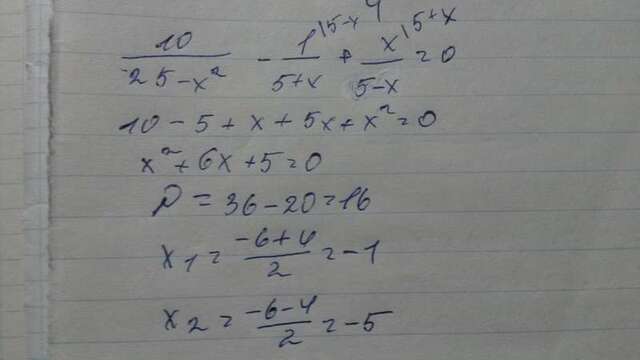 10/(25-x²) - 1\5-x/(5+x) + x\5+x/(5-x) = 0
10 - 5 + x + 5x + x² = 0
x² + 6x + 5 = 0
D = 36 - 20 = 16
x1 = (-6+4)/2 = -1
x2 = (-6-4)/2 = -5